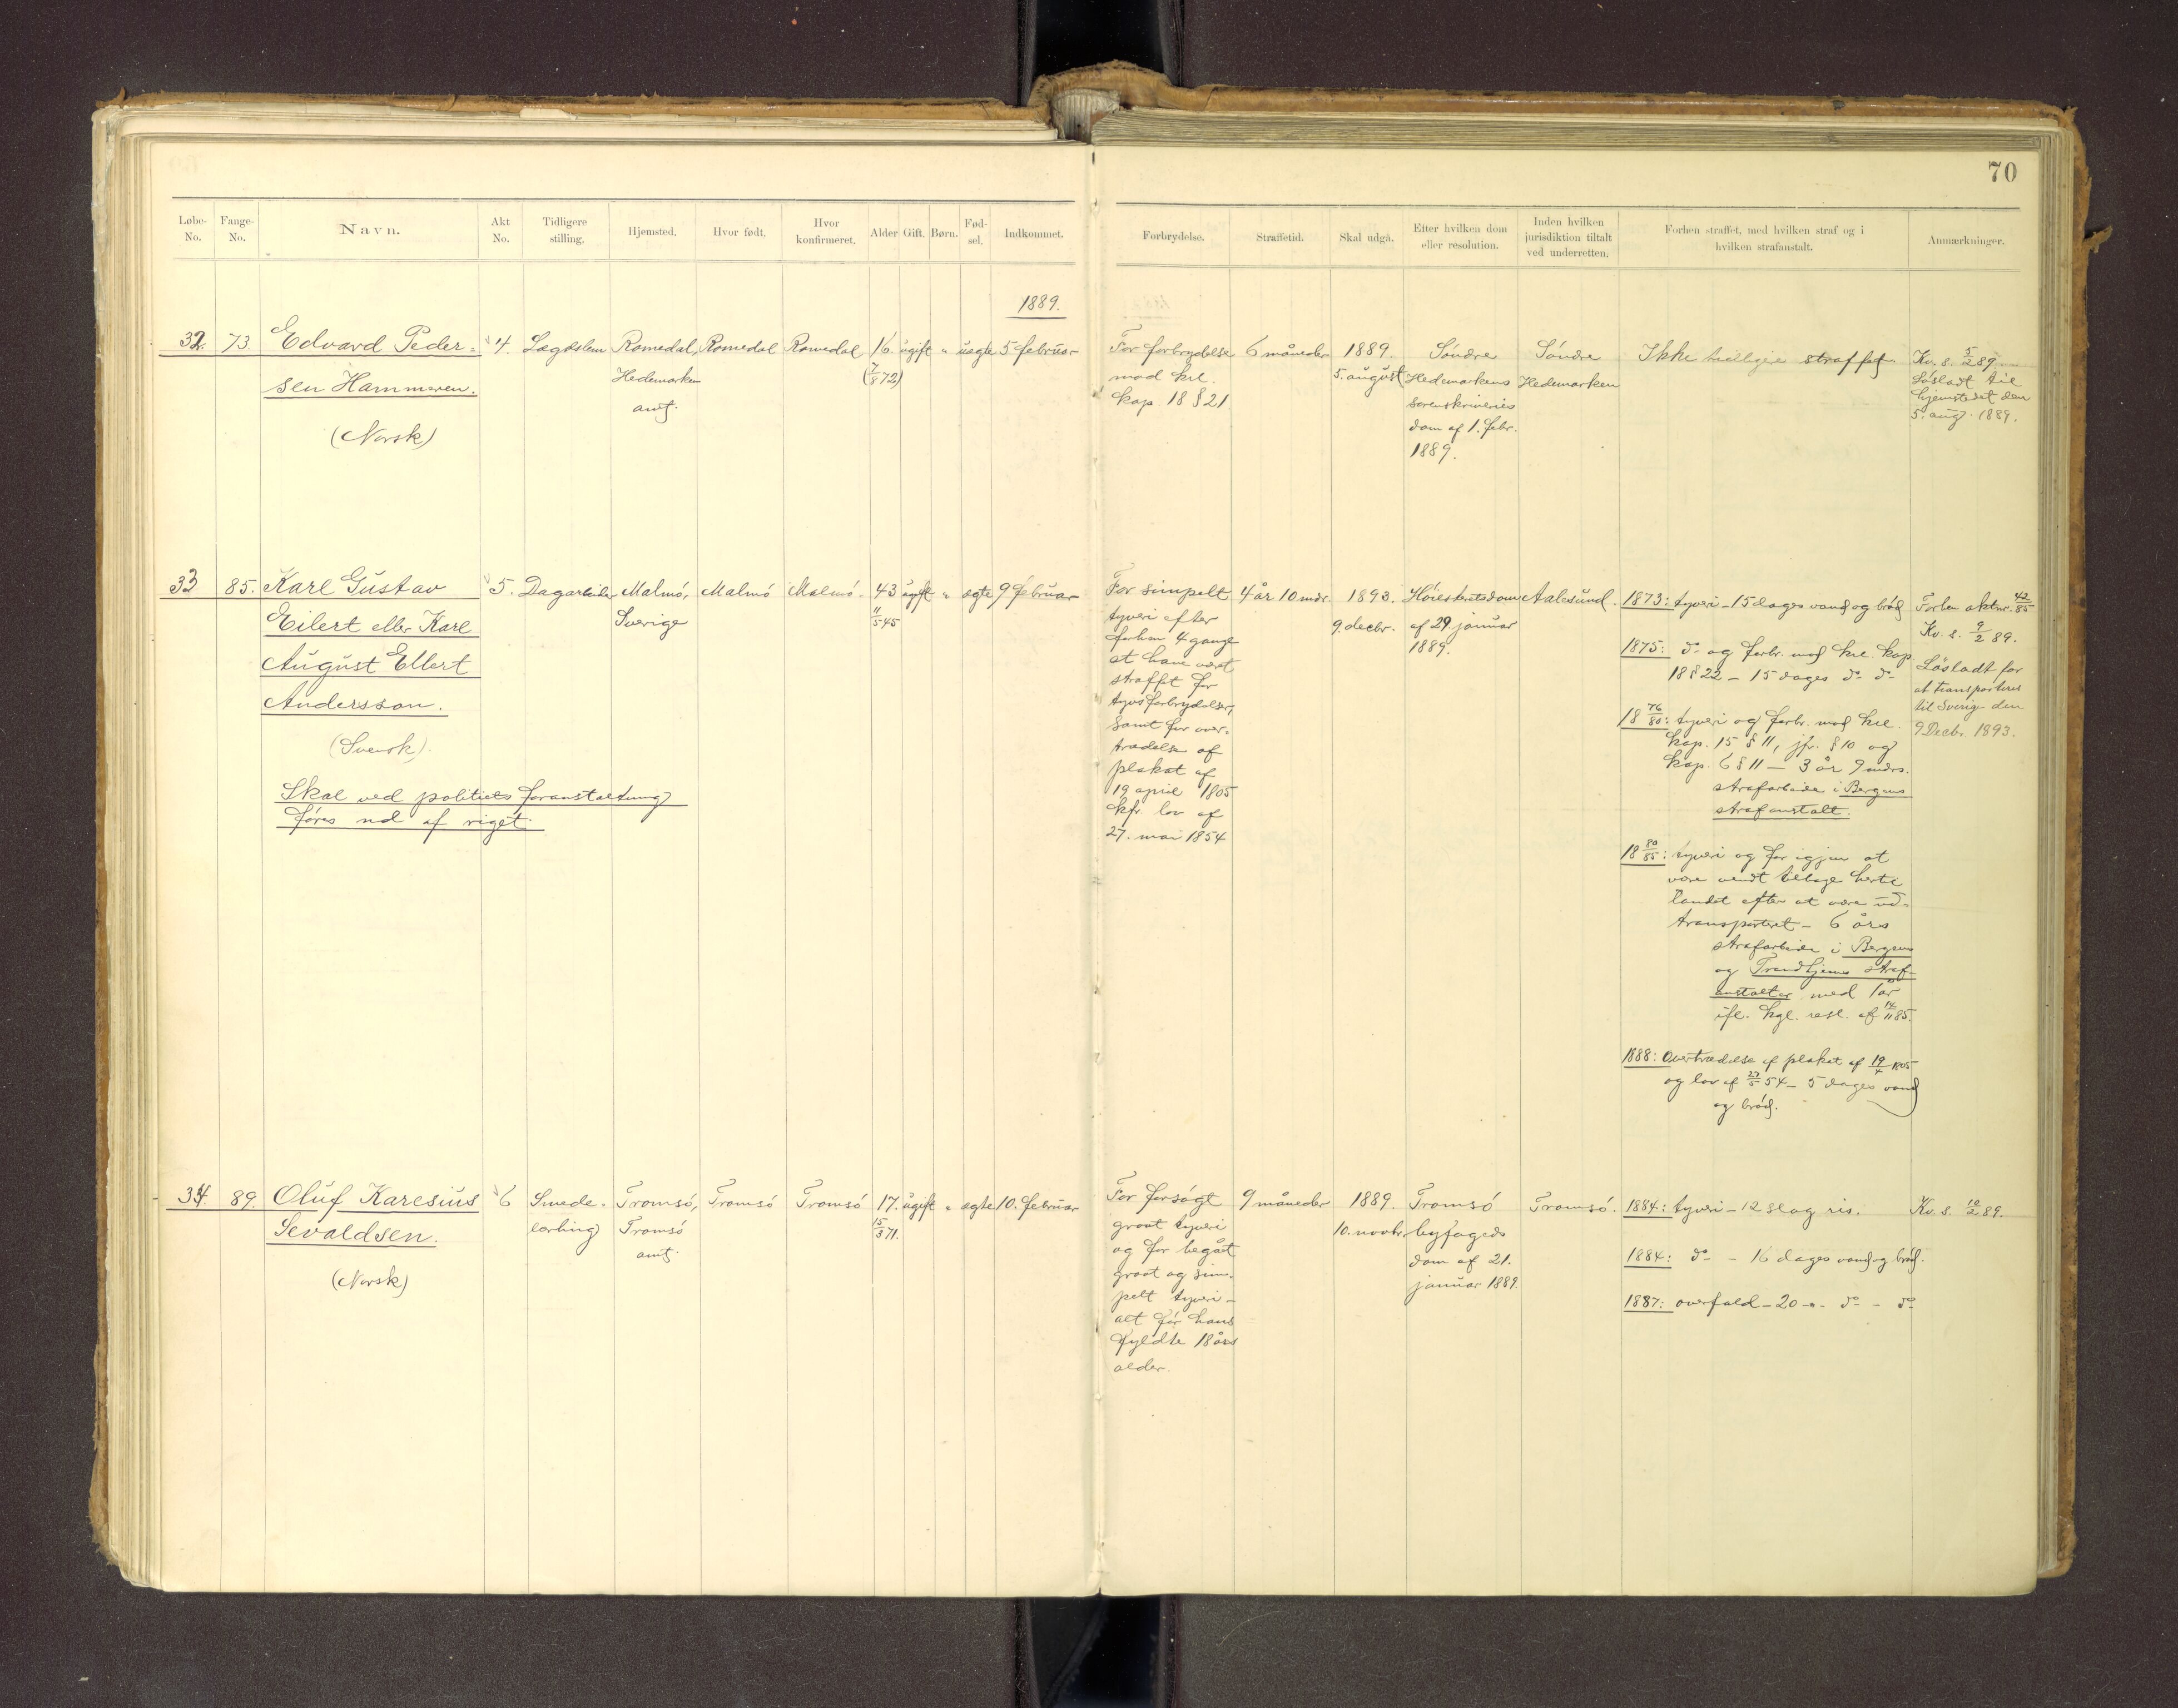 70
Løbe-No.
Fange-No.
Navn.
Akt No.
Tidligere stilling.
Hjemsted.
Hvor født.
Hvor konfirmeret.
Alder
Gift.
Børn.
Fød-sel.
Indkommet.
Forbrydelse.
Straffetid.
Skal udgå.
Efter hvilken dom eller resolution.
Inden hvilken jurisdiktion tiltalt ved underretten.
Forhen straffet, med hvilken straf og i hvilken strafanstalt.
Anmærkninger.
1889.
32.
73.
Edvard Peder-
sen Hammeren.
(Norsk)
4.
Lægdslem
Romedal,
Hedemarken
amt.
Romedal
Romedal
16.
(7/8 72)
ugift
"
uægte
5 februar
For forbrydelse
mod krl.
kap. 18 § 21
6 måneder
1889.
5. august
Søndre
Hedemarkens
sorenskriveries
dom af 1. febr.
1889.
Søndre
Hedemarken
Ikke tidligere straffet.
Kv. s. 5/2 89.
Løsladt til
hjemstedet den
5. aug. 1889.
33
85.
Karl Gustav
Eilert eller Karl
August Ellert
Andersson.
(Svensk).
Skal ved politiets foranstaltning
føres ud af riget.
5.
Dagarbeider
Malmö,
Sverige
Malmö
Malmö.
43
11/5 45
ugift
"
ægte
9 februar
For simpelt
tyveri efter
forhen 4 gange
at have været
straffet for
tyvsforbrydelser,
samt for over-
trædelse af
plakat af
19 april 1805
kfr. lov af
27. mai 1854
4 år 10 mdr.
1893.
9. decbr.
Høiesteretsdom
af 29. januar
1889.
Aalesund.
1873: tyveri - 15 dages vand og brød
1875: do og forbr. mod krl. kap.
18 § 22 - 15 dages do do
18 76/80: tyveri og forbr. mod krl.
kap. 15 § 11, jfr. § 10 og
kap. 6 § 11 - 3 år 9 mdrs.
strafarbeide i Bergens
strafanstalt.
18 80/85: tyveri og for igjen at
være vendt tilbage hertil
landet efter at være ud-
transporteret - 6 års
strafarbeide i Bergens
og Trondhjems straf-
anstalter med 1 år
ifl. kgl. resl. af 14/11 85.
1888: Overtrædelse af plakat af 19/4 1805
og lov af 27/5 54 - 5 dages vand
og brød.
Forhen aktnr. 42/85
Kv. s. 9/2 89.
Løsladt for
at transporteres
til Sverige den
9 Decbr. 1893.
34.
89.
Oluf Karesius
Sevaldsen.
(Norsk)
6
Smede-
lærling
Tromsö,
Tromsö
amt.
Tromsö
Tromsö
17.
15/3 71.
ugift
"
ægte
10. februar
For forsøgt
grovt tyveri
og for begået
grovt og sim-
pelt tyveri -
alt før hans
fyldte 18 års
alder.
9 måneder
1889.
10. novbr.
Tromsö
byfogeds
dom af 21.
januar 1889.
Tromsö.
1884: tyveri - 12 slag ris.
1884: do - 16 dages vand og brød.
1887: overfald - 20 -"- do - do
Kv. s. 10/2 89.